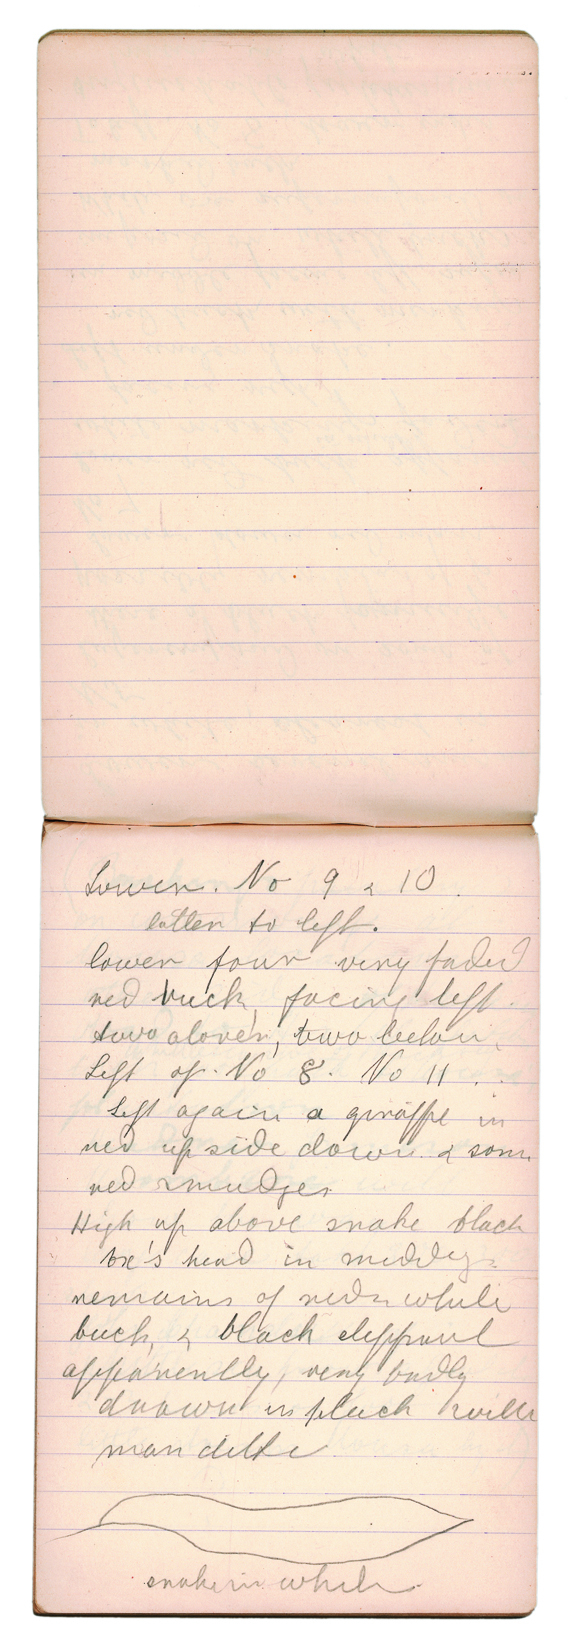 Lower. No 9 & 10.
latter to left.
lower four very faded
red buck, facing left.
two above, two below.
Left of No 8. No 11.
Left again a giraffe in
red upside down & some
red smudges
High up above snake black
ox's head in middle
remains of red & white
buck, & black elephant
apparently, very badly
drawn in black with
man ditto
snake in white